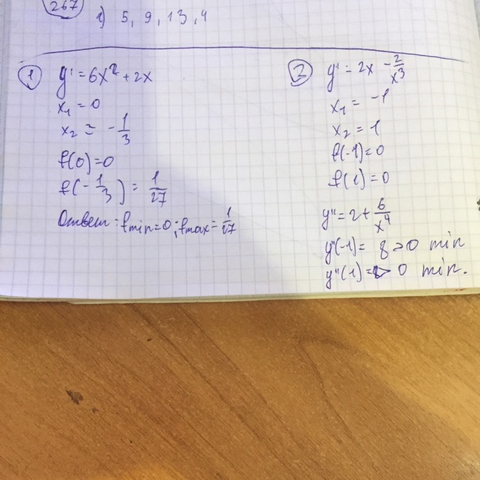 267
1) 5, 9, 13, 4
① y' = 6x² + 2x
x₁ = 0
x₂ = -1/3
f(0) = 0
f(-1/3) = 1/27
Ответ: fmin = 0; fmax = 1/27
② y' = 2x - 2/x³
x₁ = -1
x₂ = 1
f(-1) = 0
f(1) = 0
y'' = 2 + 6/x⁴
y''(-1) = 8 > 0 min
y''(1) = 8 > 0 min.